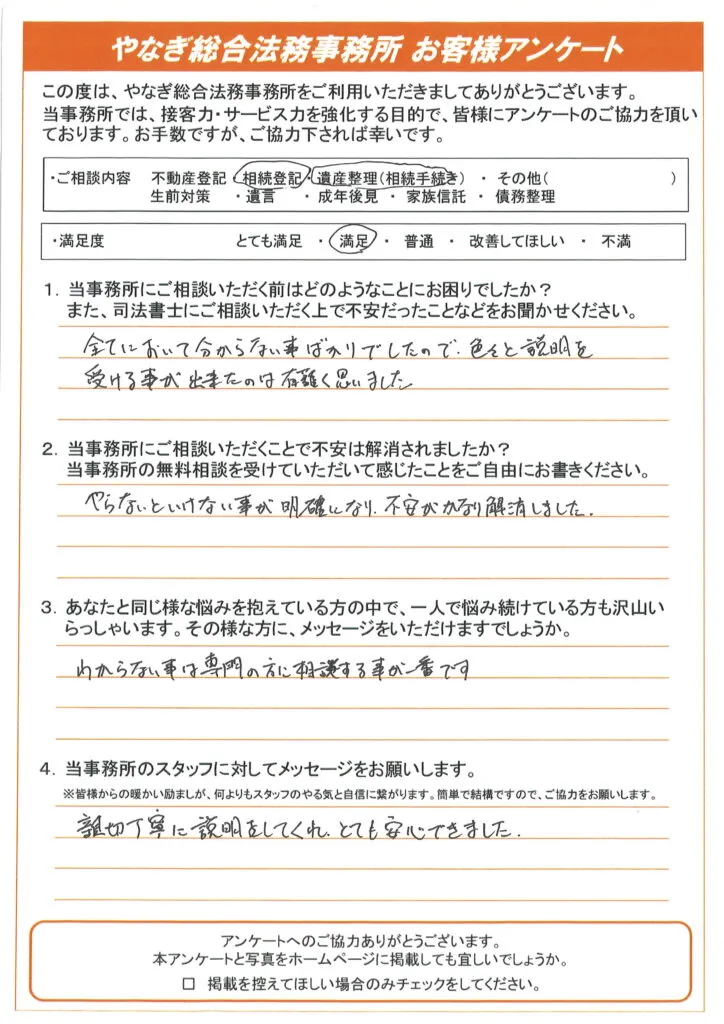 やなぎ総合法務事務所 お客様アンケート
この度は、やなぎ総合法務事務所をご利用いただきましてありがとうございます。
当事務所では、接客力・サービス力を強化する目的で、皆様にアンケートのご協力を頂い
ております。お手数ですが、ご協力下されば幸いです。
・ご相談内容 不動産登記・相続登記・遺産整理(相続手続き) ・ その他( )
生前対策 ・遺言 ・成年後見 ・家族信託 ・債務整理
・満足度 とても満足 ・ 満足 ・ 普通 ・ 改善してほしい ・ 不満
1. 当事務所にご相談いただく前はどのようなことにお困りでしたか？
また、司法書士にご相談いただく上で不安だったことなどをお聞かせください。
全てにおいて分からない事ばかりでしたので、色々と説明を
受ける事が出来たのは有難く思いました
2. 当事務所にご相談いただくことで不安は解消されましたか？
当事務所の無料相談を受けていただいて感じたことをご自由にお書きください。
やらないといけない事が明確になり、不安がかなり解消しました。
3. あなたと同じ様な悩みを抱えている方の中で、一人で悩み続けている方も沢山い
らっしゃいます。その様な方に、メッセージをいただけますでしょうか。
わからない事は専門の方に相談する事が一番です
4. 当事務所のスタッフに対してメッセージをお願いします。
※皆様からの暖かい励ましが、何よりもスタッフのやる気と自信に繋がります。簡単で結構ですので、ご協力をお願いします。
親切丁寧に説明をしてくれ、とても安心できました。
アンケートへのご協力ありがとうございます。
本アンケートと写真をホームページに掲載しても宜しいでしょうか。
□ 掲載を控えてほしい場合のみチェックをしてください。